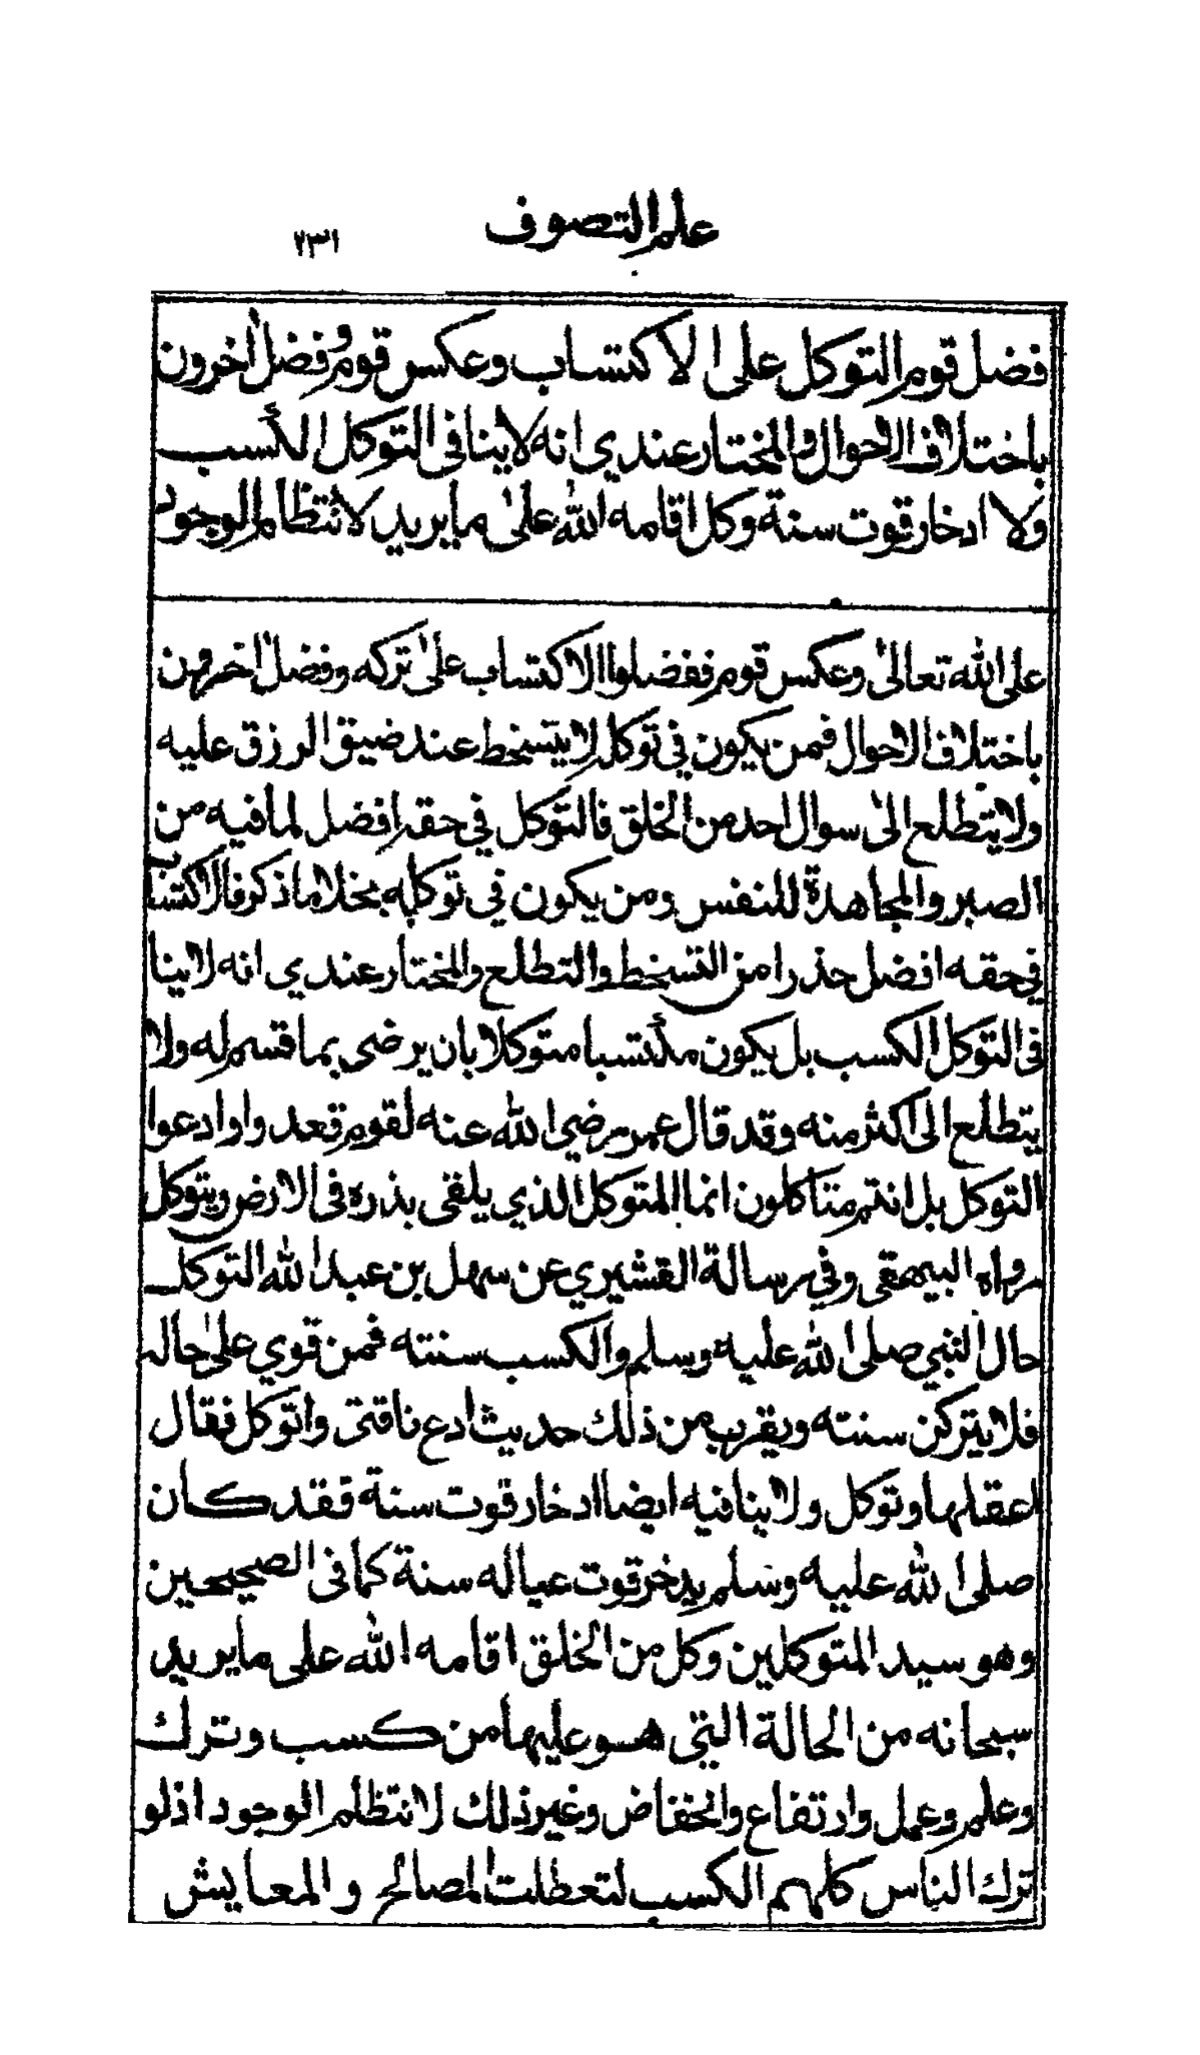 علم التصوف
٢٣١
فضل قوم التوكل على الاكتساب وعكس قوم وفضل اخرون
باختلاف الاحوال والمختار عندي انه لاينافى التوكل الكسب
ولا ادخار قوت سنة وكل اقامه الله على مايريد لانتظام الوجود
على الله تعالى وعكس قوم ففضلوا الاكتساب على تركه وفضل اخرون
باختلاف الاحوال فمن يكون في توكله لا يتسخط عند ضيق الرزق عليه
ولا يتطلع الى سوال احد من الخلق فالتوكل في حقه افضل لما فيه من
الصبر والمجاهدة للنفس ومن يكون في توكله بخلاف ماذكر فالاكتساب
في حقه افضل حذرا من التسخط والتطلع والمختار عندي انه لاينا
فى التوكل الكسب بل يكون مكتسبا متوكلا بان يرضى بما قسم له ولا
يتطلع الى اكثر منه وقد قال عمر رضي الله عنه لقوم قعدوا وادعوا
التوكل بل انتم متاكلون انما المتوكل الذي يلقى بذره فى الارض ويتوكل
رواه البيهقى وفي رسالة القشيري عن سهل بن عبد الله التوكل
حال النبي صلى الله عليه وسلم والكسب سنته فمن قوي على حاله
فلا يتركن سنته ويقرب من ذلك حديث ادع ناقتى واتوكل فقال
اعقلها وتوكل ولا ينافيه ايضا ادخار قوت سنة فقد كان
صلى الله عليه وسلم يدخر قوت عياله سنة كما فى الصحيحين
وهو سيد المتوكلين وكل من الخلق اقامه الله على ما يريد
سبحانه من الحالة التي هو عليها من كسب وترك
وعلم وعمل وارتفاع وانخفاض وغير ذلك لانتظام الوجود اذ لو
ترك الناس كلهم الكسب لتعطلت المصالح والمعايش